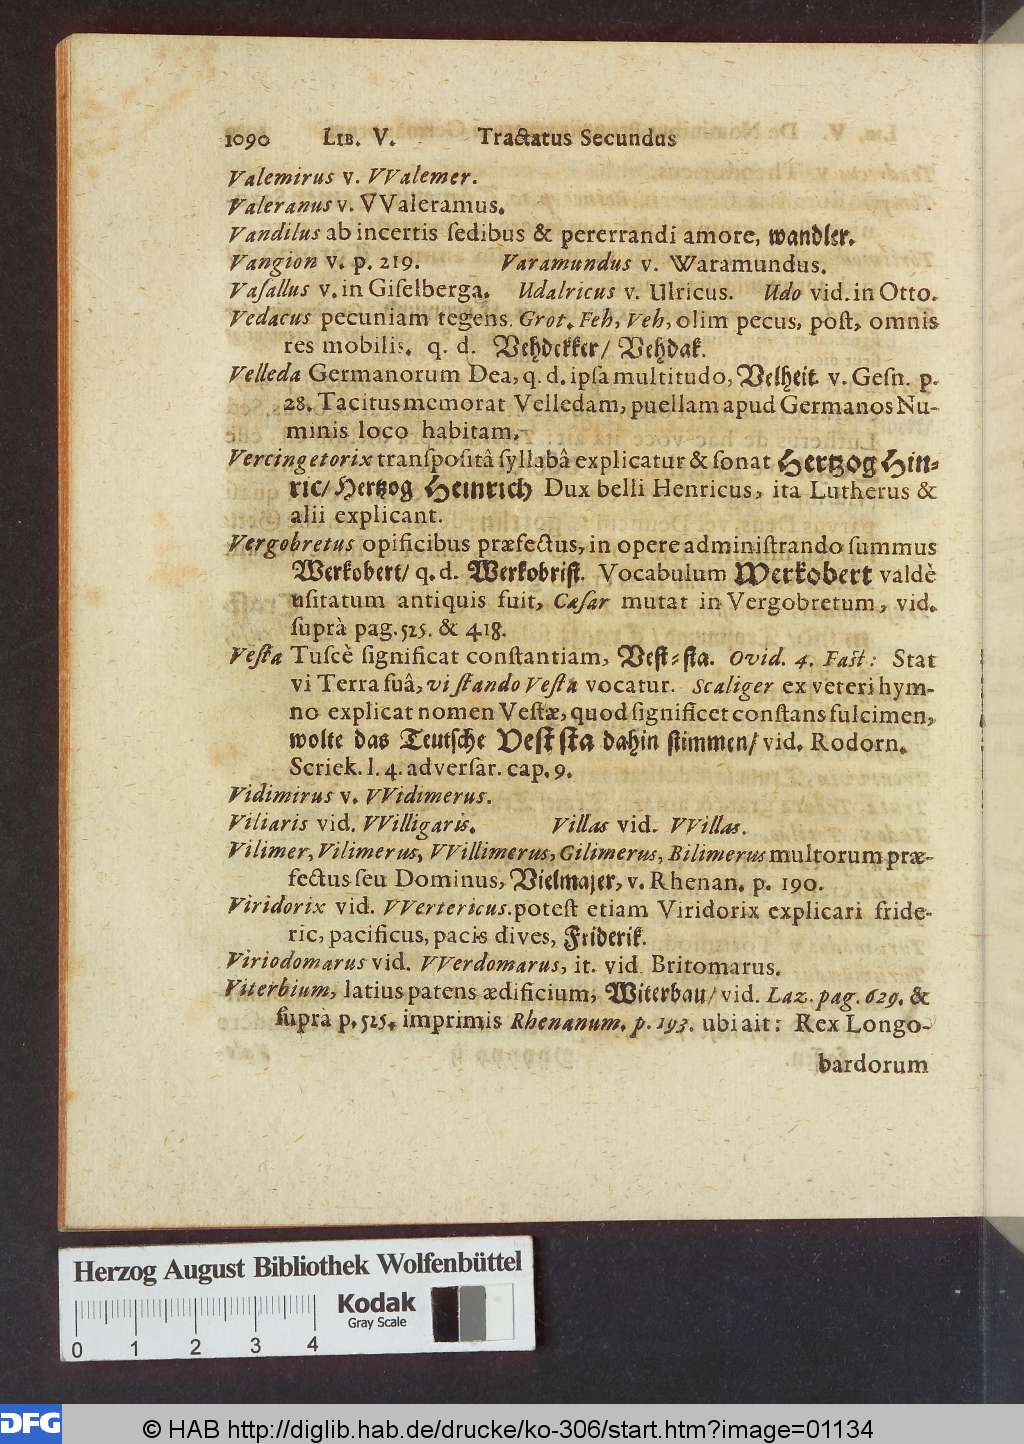 1090 LIB. V. Tractatus Secundus
Valemirus v. VValemer.
Valeranus v. VValeramus.
Vandilus ab incertis ſedibus & pererrandi amore, wandler.
Vangion v. p. 219. Varamundus v. Waramundus.
Vaſallus v. in Giſelberga. Udalricus v. Ulricus. Udo vid. in Otto.
Vedacus pecuniam tegens. Grot. Feh, Veh, olim pecus, poſt, omnis
res mobilis. q. d. Vehdekker/ Vehdak.
Velleda Germanorum Dea, q. d. ipſa multitudo, Velheit. v. Geſn. p.
28. Tacitus memorat Velledam, puellam apud Germanos Nu-
minis loco habitam.
Vercingetorix tranſpoſitâ ſyllabâ explicatur & ſonat Hertzog Hin-
ric/ Hertzog Heinrich Dux belli Henricus, ita Lutherus &
alii explicant.
Vergobretus opificibus præfectus, in opere adminiſtrando ſummus
Werkobert/ q. d. Werkobriſt. Vocabulum Werkobert valdè
uſitatum antiquis fuit, Cæſar mutat in Vergobretum, vid.
ſuprà pag. 525. & 418.
Veſta Tuſcè ſignificat conſtantiam, Veſt-ſta. Ovid. 4. Faſt: Stat
vi Terra ſuâ, vi ſtando Veſta vocatur. Scaliger ex veteri hym-
no explicat nomen Veſtæ, quod ſignificet conſtans fulcimen,
wolte das Teutſche Veſt ſta dahin ſtimmen/ vid. Rodorn.
Scriek. l. 4. adverſar. cap. 9.
Vidimirus v. VVidimerus.
Viliaris vid. VVilligaris. Villas vid. VVillas.
Vilimer, Vilimerus, VVillimerus, Gilimerus, Bilimerus multorum præ-
fectus ſeu Dominus, Vielmajer, v. Rhenan. p. 190.
Viridorix vid. VVertericus. poteſt etiam Viridorix explicari fride-
ric, pacificus, pacis dives, Friderik.
Viriodomarus vid. VVerdomarus, it. vid. Britomarus.
Viterbium, latius patens ædificium, Witerbau/ vid. Laz. pag. 629. &
ſuprà p. 525. imprimis Rhenanum. p. 193. ubi ait: Rex Longo-
bardorum
Herzog August Bibliothek Wolfenbüttel
Kodak
Gray Scale
0 1 2 3 4
DFG
© HAB http://diglib.hab.de/drucke/ko-306/start.htm?image=01134